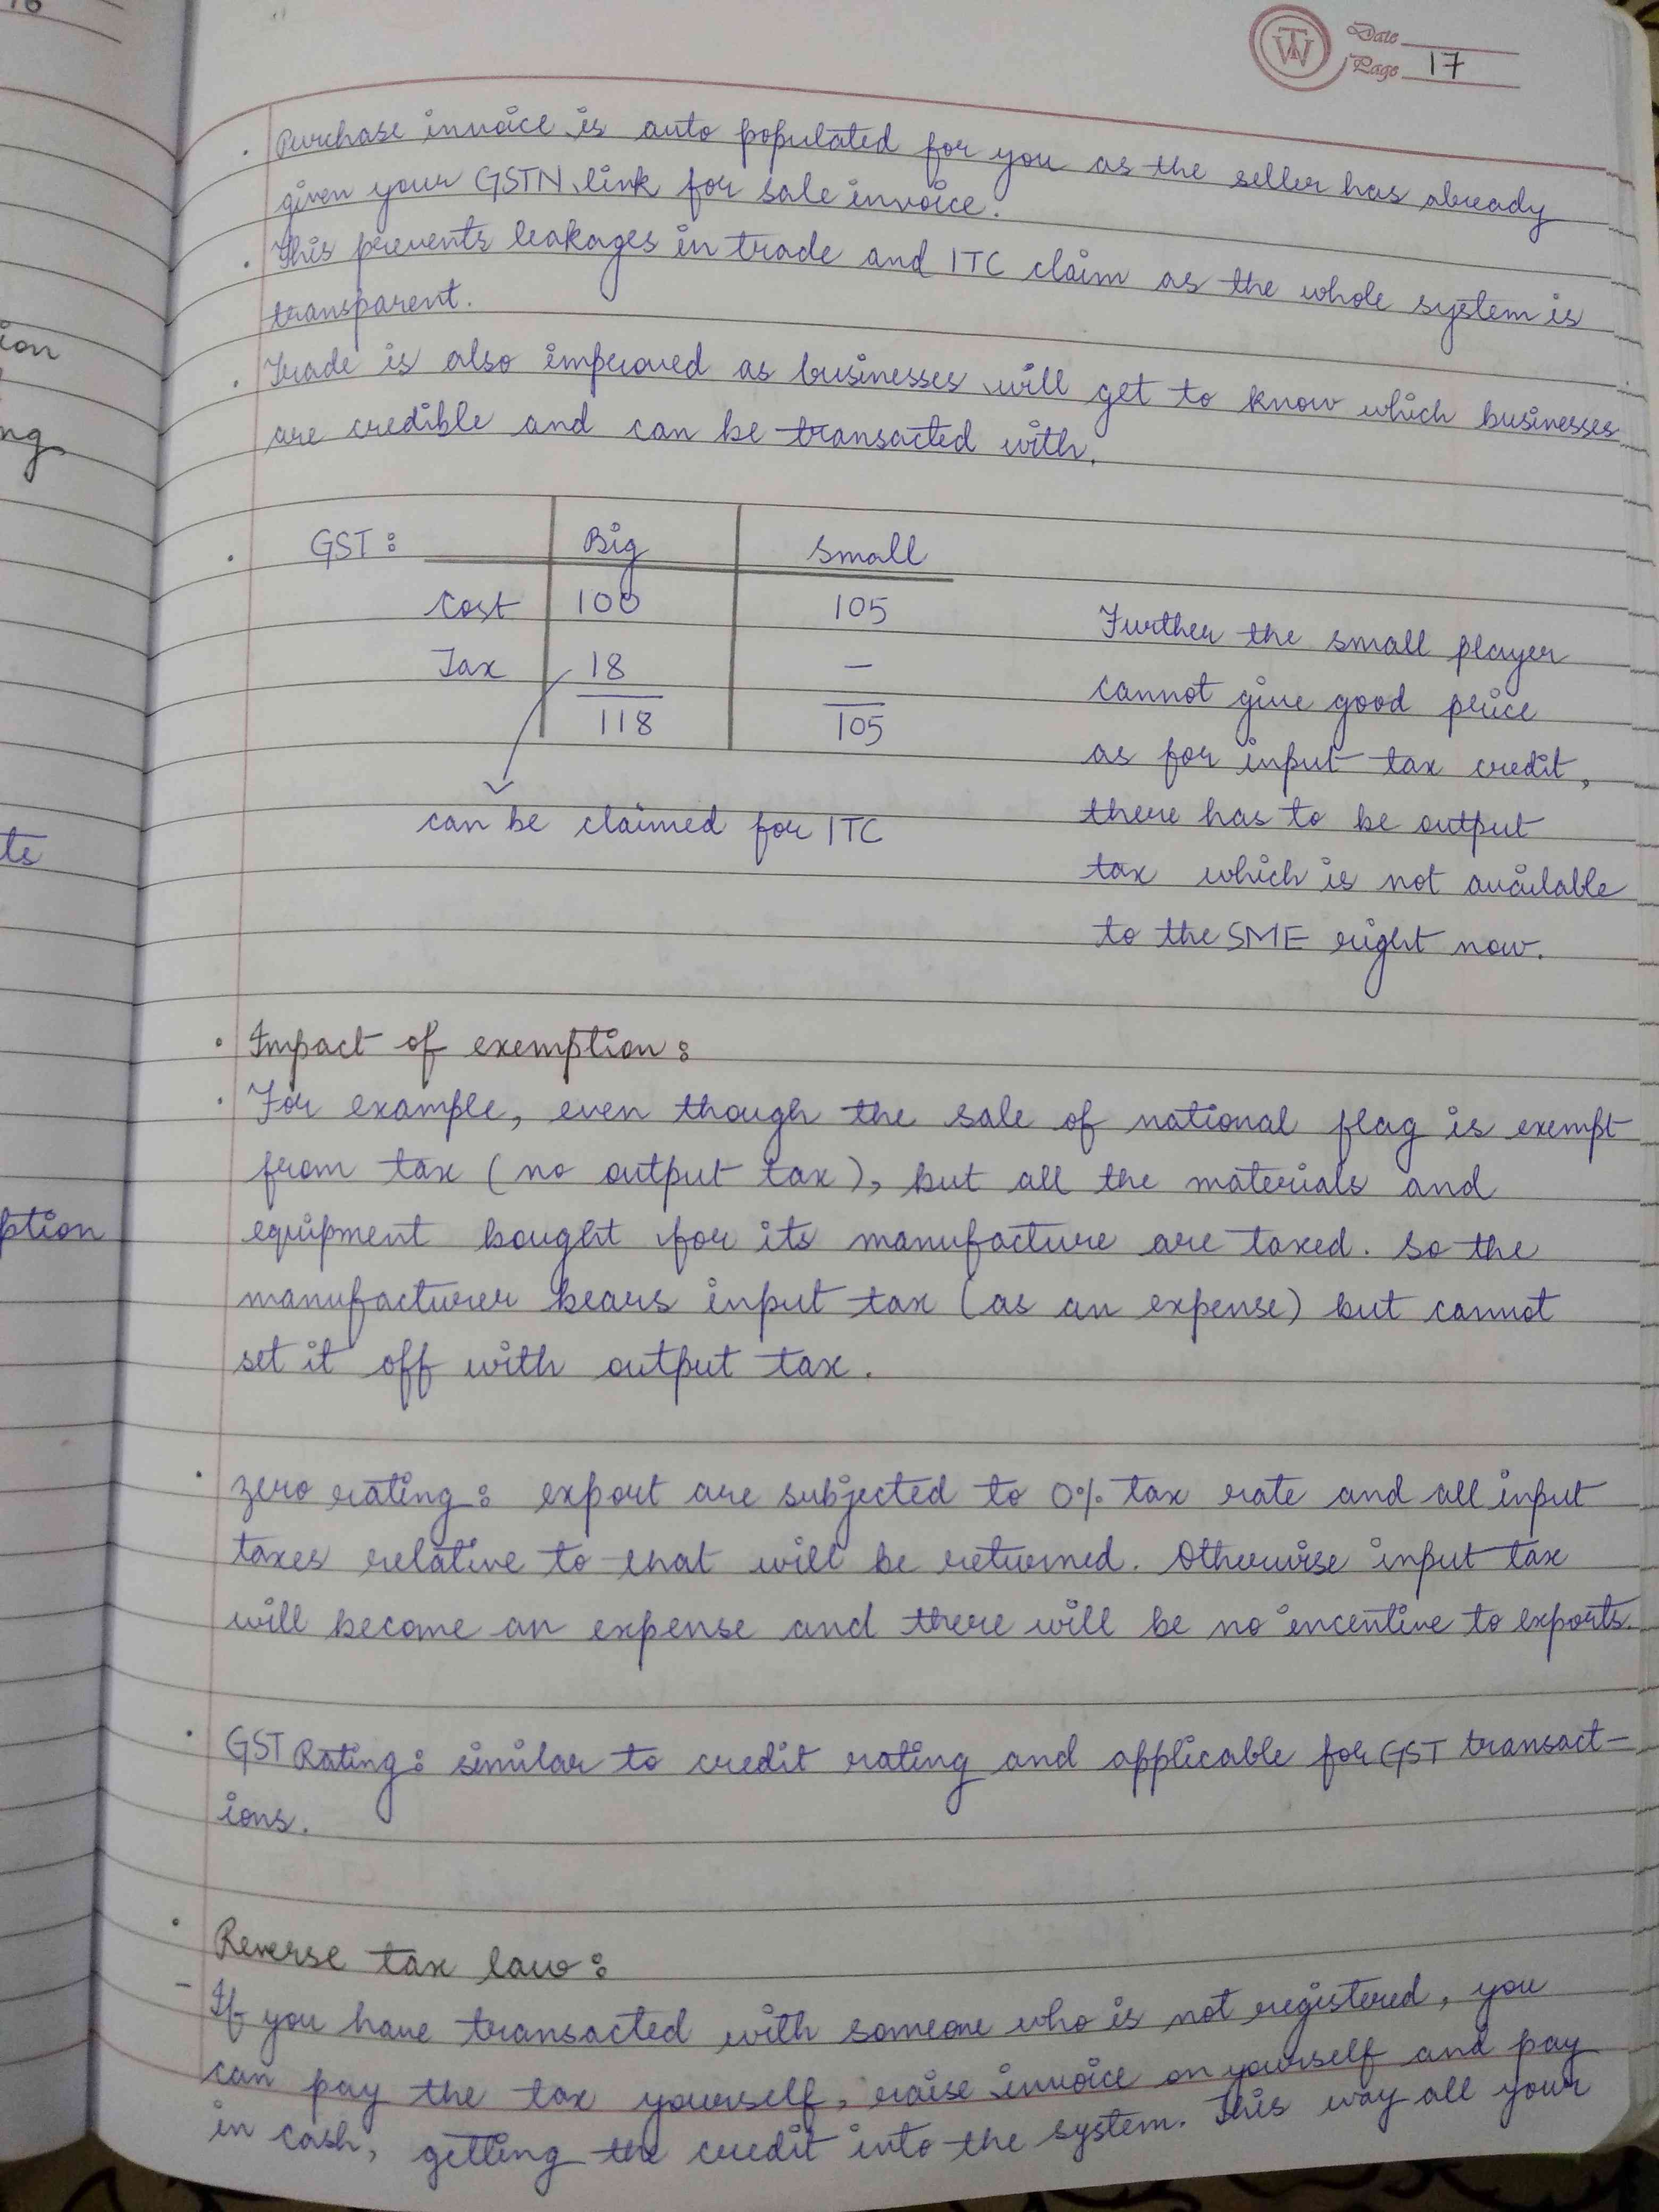 16
ion
ng
ts
ption
Date
Page 17
. Purchase invoice is auto populated for you as the seller has already
given your GSTN link for sale invoice.
. This prevents leakages in trade and ITC claim as the whole system is
transparent.
. Trade is also improved as businesses will get to know which businesses
are credible and can be transacted with.
. GST : Big Small
Cost 100 105
Tax 18 —
118 105
can be claimed for ITC
Further the small player
cannot give good price
as for input tax credit,
there has to be output
tax which is not available
to the SME right now.
. Impact of exemption :
. For example, even though the sale of national flag is exempt
from tax (no output tax), but all the materials and
equipment bought for its manufacture are taxed. So the
manufacturer bears input tax (as an expense) but cannot
set it off with output tax.
. Zero rating : export are subjected to 0% tax rate and all input
taxes relative to that will be returned. Otherwise input tax
will become an expense and there will be no incentive to exports.
. GST Rating : similar to credit rating and applicable for GST transact-
ions.
. Reverse tax law :
- If you have transacted with someone who is not registered, you
can pay the tax yourself, raise invoice on yourself and pay
in cash, getting the credit into the system. This way all your